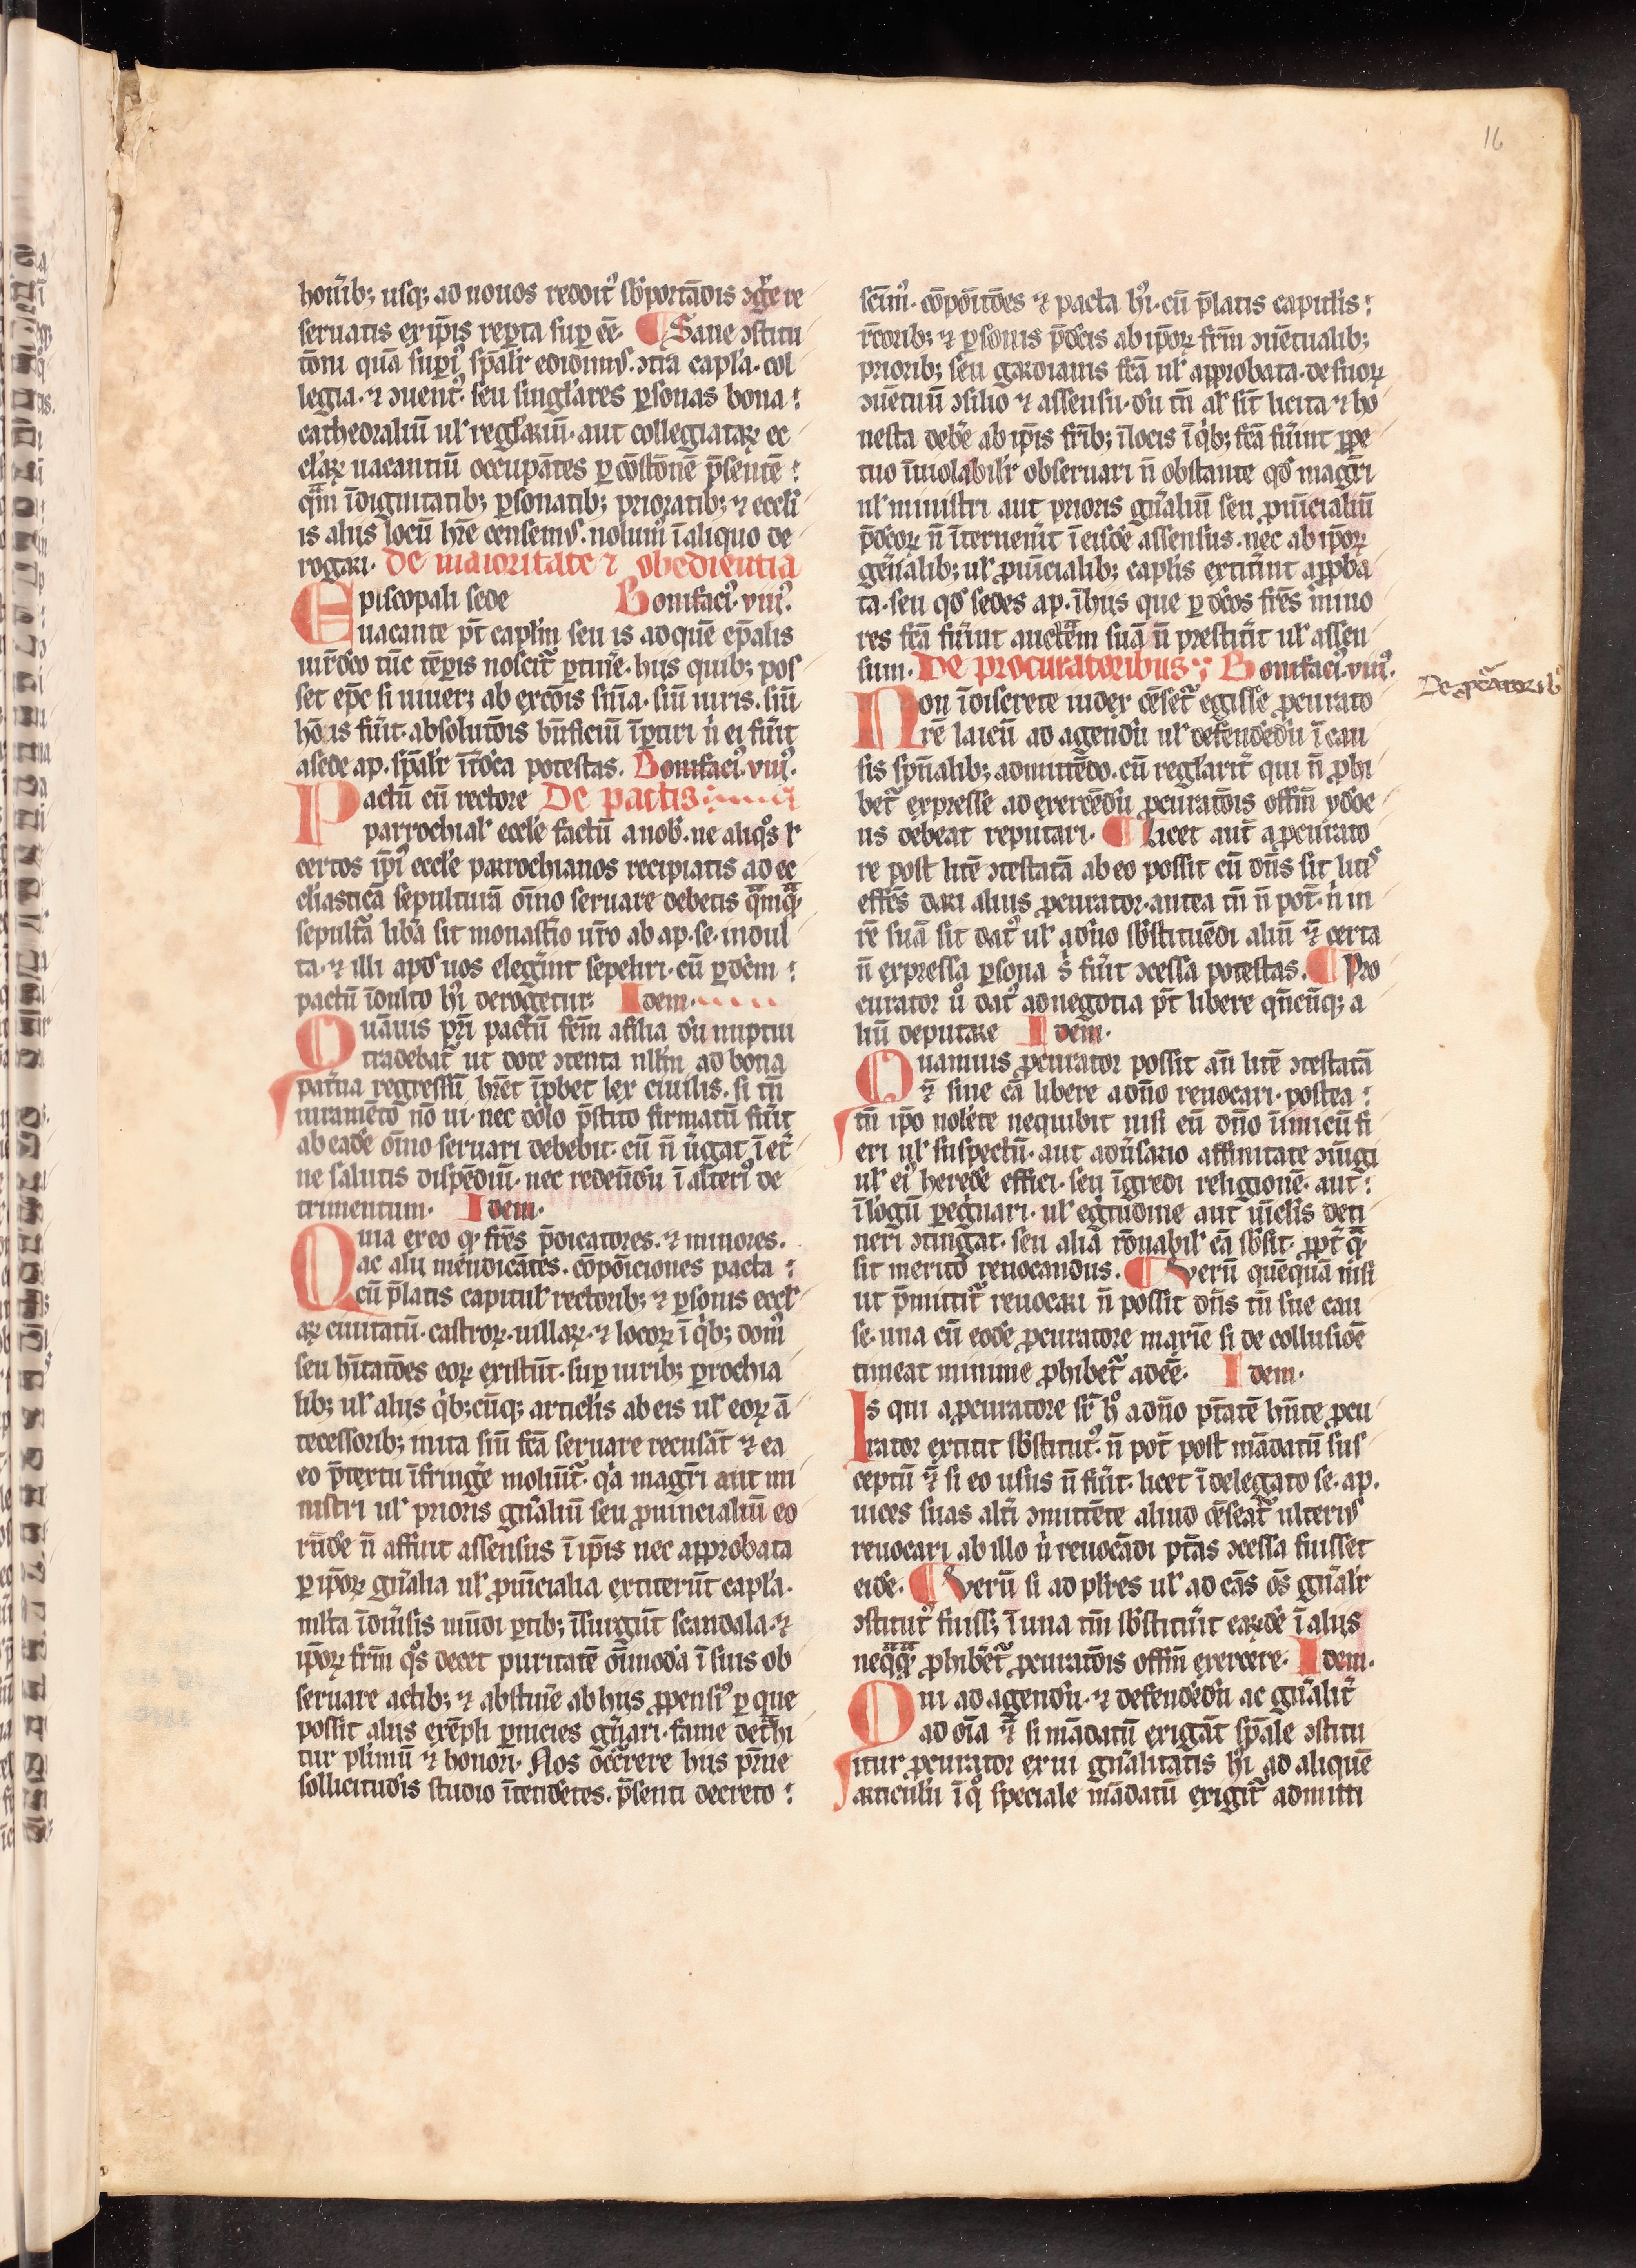 16
honib; usq; ad nouos reddit᷒ sb̄portādis ꝯgͤre re
seruatis ex ip̄is rep̱ta sup̱ ēe. ¶ Sane ꝯstitu
tōni quā sup̱i᷒ sp̄alr̄ edidimꝰ. ꝯtra capl̄a. col
legia. ⁊ ꝯuent᷒. seu singl̄ares ꝑsonas bona :
cathedraliū ul̓ regl̄ariū. aut collegiataꝝ ec
cl̄aꝝ uacantiū occupātes ꝑ cōstōnē p̄sentē :
qͣm īdignitatib; ꝑsonatib; prioratib; ⁊ eccl̄i
is aliis locū hr̄e censemꝰ. nolum᷒ ī aliquo de
rogari. De maioritate ⁊ obedientia
Episcopali sede Bonifaci᷒. viii᷒.
uacante pt̄ capl̄m seu is ad quē ep̄alis
iur̄dc̄o tūc tēꝑis noscit᷑ ꝑtine᷑. hiis quib; pos
set ep̄c si uiuer; ab excōis siu͛a. siu͛ iuris. siu͛
hōis fu͛it. absolutōis bn̄ficiū īꝑtiri n̓ ei fu͛it
a sede ap. sp̄alr̄ īt͛dc̄a potestas. Bonifaci᷒. viii᷒.
Pactū cū rectore De pactis
parrochial̓ eccl̄e factū a nob̄. ne aliqͦs ł
certos ip̄i᷒ eccl̄e parrochianos recipiatis ad ec
cliasticā sepulturā oīno seruare debetis qͣmqͣ
sepult͛a lib͛a sit monast͛io ur̄o ab ap. se. indul
ta. ⁊ illi apd̓ uos eleg͛int sepeliri. cū ꝑ dc̄m :
pactū īdulto hi᷒ derogetur. Idem.
Quāuis pr̄i pactū fcm̄ a filia du᷑ nuptui
tradebat᷑ ut dote ꝯtenta nll̄m ad bona
pat͛na regressū hr̄et īꝓbet lex ciuilis. si tn̄
iuramēto nō ui. nec dolo p̄stito firmatū fu͛it
ab eadē oīno seruari debebit. cū n̄ u͛gat ī et͛
ne salutis dispēdiū. nec redēūdu᷑ ī alteri᷒ de
trimentum. Idem.
Quia ex eo qꝫ fr̄es p̄dicatores. ⁊ minores.
ac alii mendicātes. cōpōiciones pacta :
cū p̄latis capitul̓ rectorib; ⁊ ꝑsonis eccl̓
aꝝ ciuitatū. castroꝝ. uillaꝝ. ⁊ locoꝝ ī qͥb; dom᷒
seu hītatōes eoꝝ existūt. sup̱ iurib; ꝑrochia
lib; ul̓ aliis qͥb;cūq; articl̄is ab eis ul̓ eoꝝ ā
tecessorib; inita siu͛ fcā seruare recusāt ⁊ ea
eo p̄textu īfringe͛ moliūt᷑. qͥa magr̄i aut mi
nistri ul̓ prioris gn͛aliū seu ꝓuincialiū eo
rūdē n̄ affuit assensus ī ip̄is nec approbata
ꝑ ip̄oꝝ gn͛alia ul̓ ꝓuīcialia extiterūt capl̄a.
ml̄ta īdiu͛sis mūdi ꝑtib; īsurgūt scandala. ⁊
ip̄oꝝ fr̄m qͦs decet puritatē oīmodā ī suis ob
seruare actib; ⁊ abstine͛ ab hiis ꝓpensi᷒ ꝑ que
possit aliis exēpli ꝑnicies gn͛ari. fame det͛hi
tur pl̄imū ⁊ honori. Nos occ͛rere hiis pr̄ne
sollicitudīs studio ītendētes. p̄senti decreto :
scīm᷒. cōpōitōes ⁊ pacta hi᷒. cū p̄latis capitl̄is :
rc̄orib; ⁊ ꝑsonis p̄dc̄is ab ip̄oꝝ fr̄m ꝯuētualib;
priorib; seu gardianis fcā ul̓ approbata. de suoꝝ
ꝯuētuū ꝯsilio ⁊ assensu. du᷑ tn̄ al̓ sit licita ⁊ ho
nesta debe͛ ab ip̄is fr̄ib; ī locis ī qͥb; fcā fu͛int ꝑpe
tuo īuiolabilr̄ obseruari n̄ obstante qd̓ magr̄i
ul̓ ministri aut prioris gn͛aliū seu ꝓuīcialiū
p̄dc̄oꝝ n̄ īteruen͛it ī eisdē assensus. nec ab ip̄oꝝ
gen͛alib; ul̓ ꝓuīcialib; capl̄is extit͛int appba
ta. seu qd̓ sedes ap. ī hiis que ꝑ dc̄os fr̄es mino
res fcā fu͛int auctēm suā n̄ prestit͛it ul̓ assen
sum. De procuratoribus Bonifaci᷒. viii᷒.
De ꝓc͛atorib᷒
Non īdiscrete iudex cēset᷑ egisse ꝓcurato
rē laicū ad agendu᷑ ul̓ defendēdu᷑ ī cau
sis sp̄ualib; admittēdo. cū regl̄arit͛ qui n̄ ꝓhi
bet᷑ expresse ad exercēdu᷑ ꝓcuratōis offm̄ ydōe
us debeat reputari. ¶ Licet aut̄ a ꝓcurato
re post litē ꝯtestatā ab eo possit cū dn̄s sit litꝰ
effc̄s dari alius ꝓcurator. antea tn̄ n̄ pōt. n̓ in
rē suā sit dat᷒ ul̓ a dn̄o sb̄stituēdi aliū ⁊͛ certa
n̄ expressa ꝑsona s̓ fu͛it ꝯcessa potestas. ¶ Pro
curator u̓ dat᷒ ad negotia pt̄ libere qn̄cūq; a
liū deputare Idem.
Quamuis ꝓcurator possit an̄ litē ꝯtestatā
⁊͛ sine cā libere a dn̄o reuocari. postea :
tn̄ ip̄o nolēte nequibit nisi cū dn̄o īimicū fi
eri ul̓ suspectū. aut adu͛sario affinitate ꝯiūgi
ul̓ ei᷒ heredē effici. seu īgredi religionē. aut :
ī logū ꝑegͥnari. ul̓ egͥtudine aut uīclis deti
neri ꝯtingat. seu aliā rōnabil̓ cā sb̄sit. ꝓpt͛ qͣ
sit merito reuocandus. ¶ Verū quēquā nisi
ut p̄mittit᷑ reuocari n̄ possit dn̄s tn̄ sue cau
se. una cū eodē ꝓcuratore maxie͛ si de collusiōe
timeat minime ꝓhibet᷑ adēe. Idem.
Is qui a ꝓcuratore sr̄ hͦ a dn̄o pt̄atē hn̄te ꝓcu
rator extitit sb̄stitut᷒. n̄ pot̄ post mādatū sus
ceptū ⁊͛ si eo usus n̄ fu͛it. licet ī delegato se. ap.
uices suas alt͛i ꝯmittēte aliud cēseat᷑ ulteriꝰ
reuocari ab illo n̓ reuocādi pt̄as ꝯcessa fuisset
eidē. ¶ Verū si ad pl̄res ul̓ ad cās oēs gn͛alr̄
ꝯstitut᷒ fuiss; ī una tm̄ sb̄stitu͛it eaꝝdē ī aliis
neqͣqͣ ꝓhibet᷑ ꝓcuratōis offm̄ exercere. Idem.
Qui ad agendu᷑. ⁊ defendēdu᷑ ac gn͛alit͛
ad oīa ⁊͛ si mādatū exigāt sp̄ale ꝯstitu
itur ꝓcurator ex ui gn͛alitatis hi᷒ ad aliquē
articulu᷑ ī qͦ speciale mādatū exigit᷑ admitti